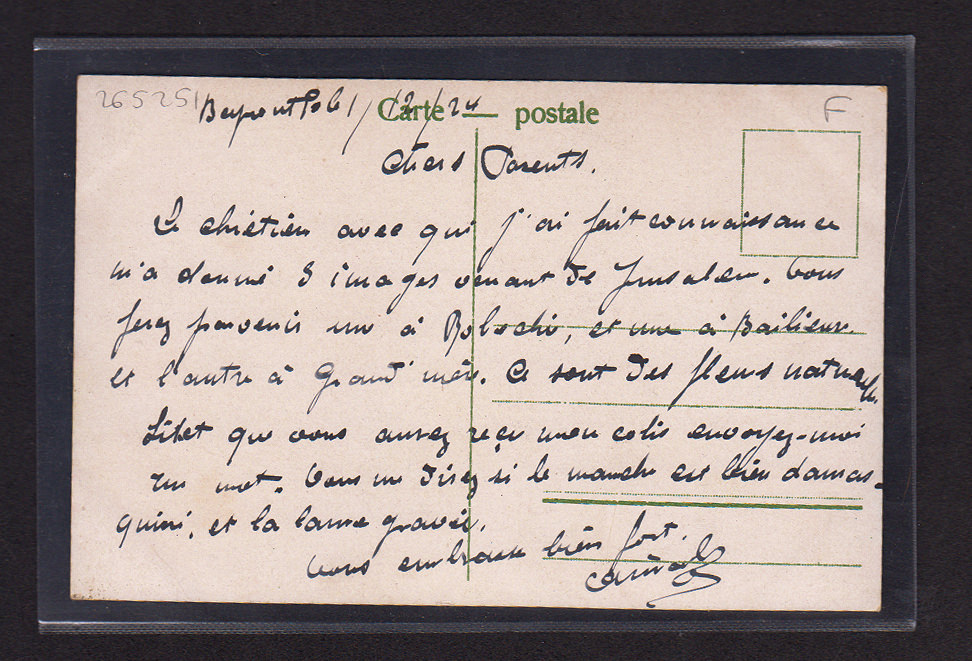 265251 F
Beyrouth le 1/12/24 Carte postale
Chers Parents.
Le chrétien avec qui j'ai fait connaissance
m'a donné 3 images venant de Jérusalem. Vous
ferez parvenir une à, et une à
et l'autre à Grand'mère. Ce sont des fleurs naturelles.
Sitot que vous aurez reçu mon colis envoyez-moi
un mot. Vous me direz si le manche est bien damas-
quiné, et la lame gravée.
Vous embrasse bien fort.